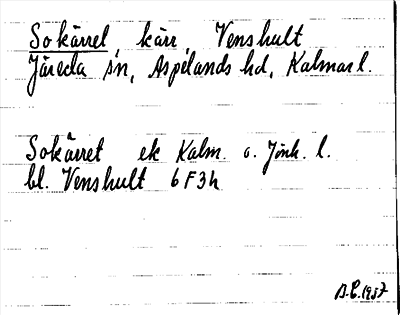 Sokärret, kärr, Venshult
Järeda sn, Aspelands hd, Kalmar l.
Sokärret ek Kalm. o. Jönk. l.
bl. Venshult 6F3h
1957